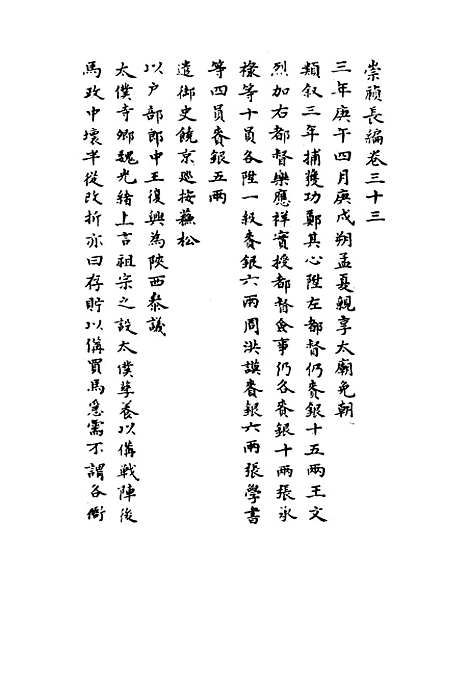 崇禎長編卷三十三
三年庚午四月庚戌朔孟夏親享太廟免朝
類叙三年捕獲功鄭其心陞左都督仍賚銀十五兩王文
烈加右都督樂應祥實授都督僉事仍各賚銀十兩張承
祿等十員各陞一級賚銀六兩周洪謨賚銀六兩張學書
等四員賚銀五兩
遣御史饒京廵按蘇松
以户部郎中王復興為陝西叅議
太僕寺卿魏光緒上言祖宗之設太僕孳養以備戰陣後
馬政中壞半從改折亦曰存貯以備買馬急需不謂各衙